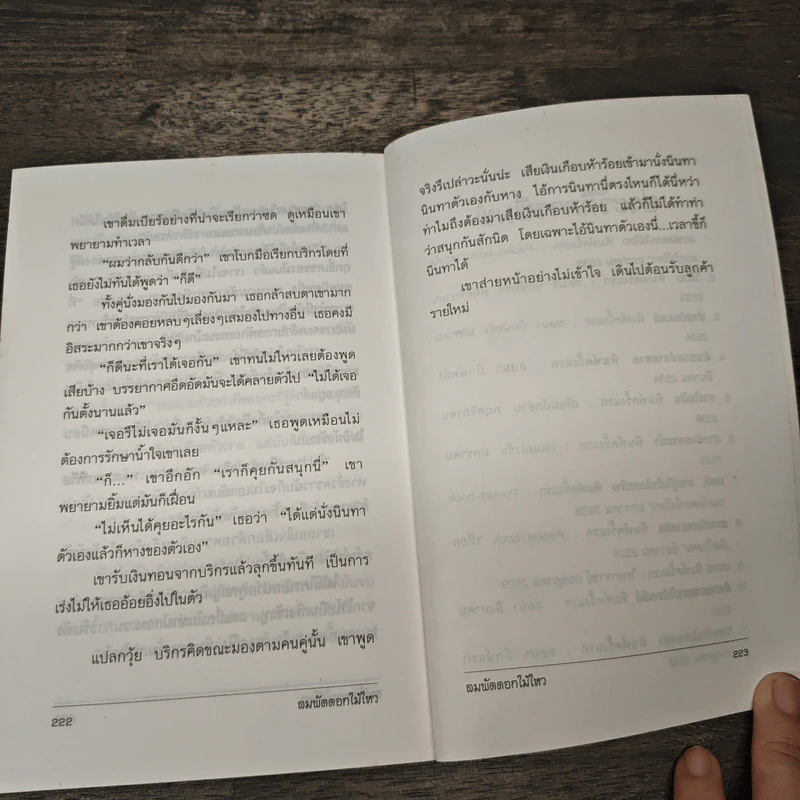 เขาดื่มเบียร์อย่างที่น่าจะเรียกว่าซด ดูเหมือนเขา
พยายามทำเวลา
“ผมว่ากลับกันดีกว่า” เขาโบกมือเรียกบริกรโดยที่
เธอยังไม่ทันได้พูดว่า “ก็ดี”
ทั้งคู่นั่งมองกันไปมองกันมา เธอกล้าสบตาเขามาก
กว่า เขาต้องคอยหลบๆเลี่ยงๆเสมองไปทางอื่น เธอคงมี
อิสระมากกว่าเขาจริงๆ
“ก็ดีนะที่เราได้เจอกัน” เขาทนไม่ไหวเลยต้องพูด
เสียบ้าง บรรยากาศอึดอัดมันจะได้คลายตัวไป “ไม่ได้เจอ
กันตั้งนานแล้ว”
“เจอรึไม่เจอมันก็งั้นๆแหละ” เธอพูดเหมือนไม่
ต้องการรักษาน้ำใจเขาเลย
“ก็...” เขาอึกอัก “เราก็คุยกันสนุกนี่” เขา
พยายามยิ้มแต่มันก็เฝื่อน
“ไม่เห็นได้คุยอะไรกัน” เธอว่า “ได้แต่นั่งนินทา
ตัวเองแล้วก็หางของตัวเอง”
เขารับเงินทอนจากบริกรแล้วลุกขึ้นทันที เป็นการ
เร่งไม่ให้เธออ้อยอิ่งไปในตัว
แปลกวุ้ย บริกรคิดขณะมองตามคนคู่นั้น เขาพูด
ลมพัดดอกไม้ไหว
222
จริงรึเปล่าวะนั่นน่ะ เสียเงินเกือบห้าร้อยเข้ามานั่งนินทา
นินทาตัวเองกับหาง ไอ้การนินทานี่ตรงไหนก็ได้นี่หว่า
ทำไมถึงต้องมาเสียเงินเกือบห้าร้อย แล้วก็ไม่ได้ทำท่า
ว่าสนุกกันสักนิด โดยเฉพาะไอ้นินทาตัวเองนี่...เวลาขี้ก็
นินทาได้
เขาส่ายหน้าอย่างไม่เข้าใจ เดินไปต้อนรับลูกค้า
รายใหม่
223
ลมพัดดอกไม้ไหว